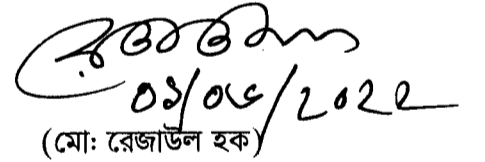 ০১/০৮/২০২২
(মোঃ রেজাউল হক)